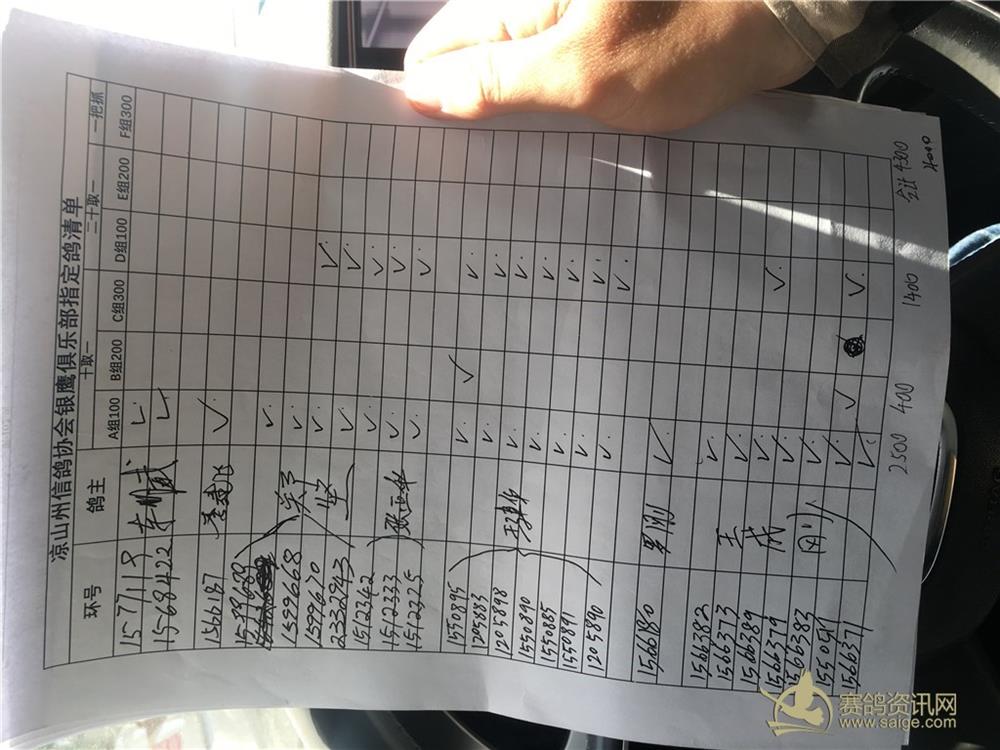 凉山州信鸽协会银鹰俱乐部指定鸽清单
十取一 二十取一 一把抓
环号 鸽主 A组100 B组200 C组300 D组100 E组200 F组300
1577118 ✓
1568422 ✓
1566187 ✓
1599680 ✓
1599668 ✓
1599670 ✓
2332943 ✓ ✓
1512342 ✓ ✓
1512333 ✓ ✓
1512325 ✓ ✓
1550895 ✓ ✓
1205883 ✓ ✓
1205898 ✓ ✓
1550890 ✓ ✓
1550885 ✓ ✓
1550891 ✓ ✓
1205890 ✓ ✓
1566180 罗刚 ✓
1566382 ✓
1566373 王 ✓
1566389 成 ✓
1566379 ✓ ✓
1566383 ✓
1550511 ✓ ✓
1566371 ✓ ✓
2500 400 1400 合计4300
4000
赛鸽资讯网
www.saige.com